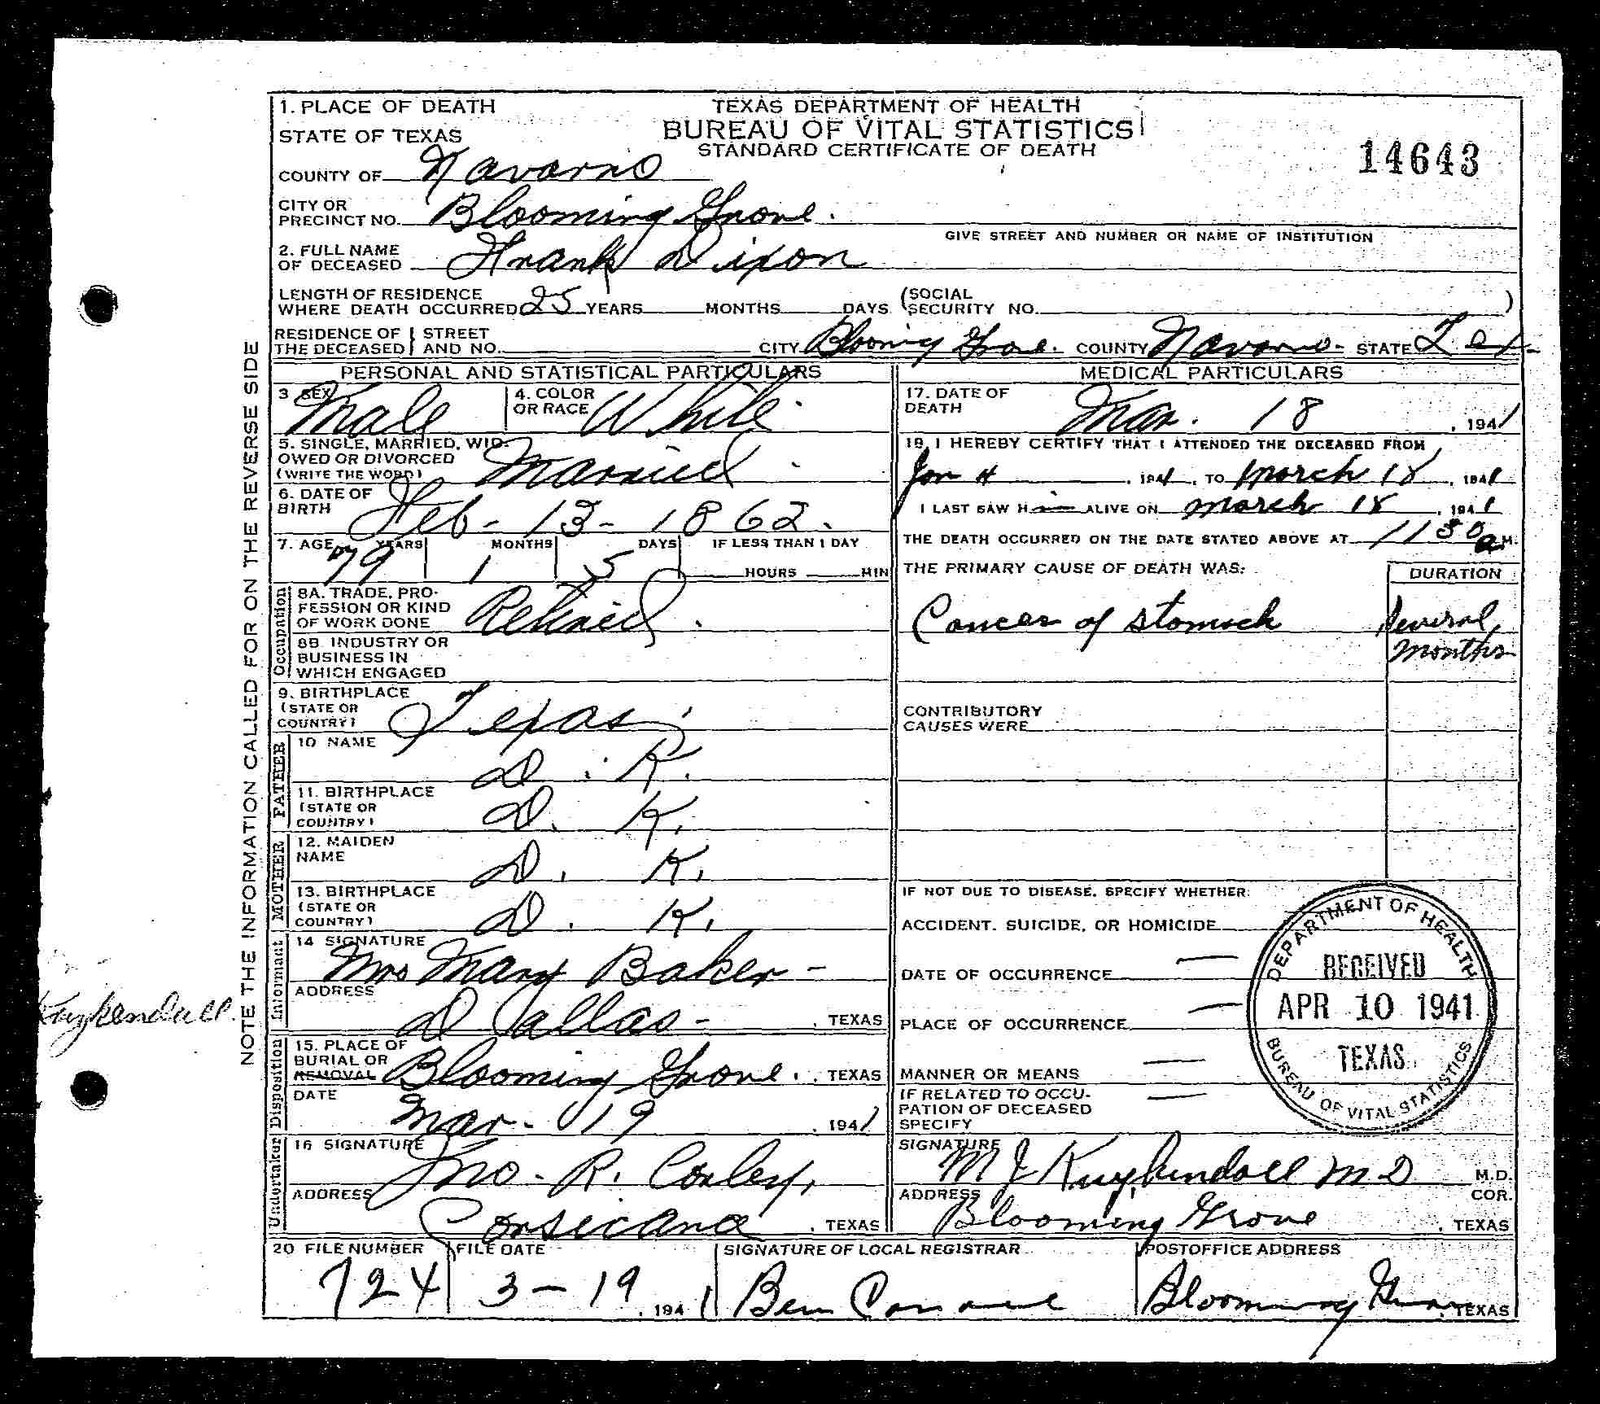 1. PLACE OF DEATH
STATE OF TEXAS
TEXAS DEPARTMENT OF HEALTH
BUREAU OF VITAL STATISTICS
STANDARD CERTIFICATE OF DEATH
14643
COUNTY OF Navarro
CITY OR PRECINCT NO. Blooming Grove.
GIVE STREET AND NUMBER OR NAME OF INSTITUTION
2. FULL NAME OF DECEASED Frank Dixon
LENGTH OF RESIDENCE WHERE DEATH OCCURRED 25 YEARS MONTHS DAYS (SOCIAL SECURITY NO. )
RESIDENCE OF THE DECEASED STREET AND NO. CITY Blooming Grove. COUNTY Navarro. STATE Tex.
PERSONAL AND STATISTICAL PARTICULARS
3 SEX Male
4. COLOR OR RACE White
5. SINGLE, MARRIED, WIDOWED OR DIVORCED (WRITE THE WORD) Married
6. DATE OF BIRTH Feb - 13 - 1862.
7. AGE 79 YEARS 1 MONTHS 5 DAYS IF LESS THAN 1 DAY HOURS MIN
Occupation
8A. TRADE, PROFESSION OR KIND OF WORK DONE Retired.
8B. INDUSTRY OR BUSINESS IN WHICH ENGAGED
9. BIRTHPLACE (STATE OR COUNTRY) Texas
FATHER
10 NAME D. K.
11. BIRTHPLACE (STATE OR COUNTRY) D. K.
MOTHER
12. MAIDEN NAME D. K.
13. BIRTHPLACE (STATE OR COUNTRY) D. K.
Informant
14 SIGNATURE Mrs Mary Baker -
ADDRESS Dallas - , TEXAS
Disposition
15. PLACE OF BURIAL OR REMOVAL Blooming Grove. , TEXAS
DATE Mar - 19 , 1941
Undertaker
16 SIGNATURE Jno. R. Corley,
ADDRESS Corsicana , TEXAS
MEDICAL PARTICULARS
17. DATE OF DEATH Mar. 18 , 1941
19. I HEREBY CERTIFY THAT I ATTENDED THE DECEASED FROM
Jan 4 , 1941, TO March 18, 1941
I LAST SAW Him ALIVE ON March 18 1941
THE DEATH OCCURRED ON THE DATE STATED ABOVE AT 1130 a M.
THE PRIMARY CAUSE OF DEATH WAS: DURATION
Cancer of stomach Several months
CONTRIBUTORY CAUSES WERE
IF NOT DUE TO DISEASE, SPECIFY WHETHER:
ACCIDENT, SUICIDE, OR HOMICIDE
DATE OF OCCURRENCE —
PLACE OF OCCURRENCE —
MANNER OR MEANS —
IF RELATED TO OCCUPATION OF DECEASED SPECIFY —
SIGNATURE M J Kuykendall MD M.D.
COR.
ADDRESS Blooming Grove , TEXAS
DEPARTMENT OF HEALTH
RECEIVED
APR 10 1941
TEXAS
BUREAU OF VITAL STATISTICS
20 FILE NUMBER 724
FILE DATE 3 - 19, 1941
SIGNATURE OF LOCAL REGISTRAR Ben
POSTOFFICE ADDRESS Blooming Grove TEXAS
NOTE THE INFORMATION CALLED FOR ON THE REVERSE SIDE
Kuykendall.